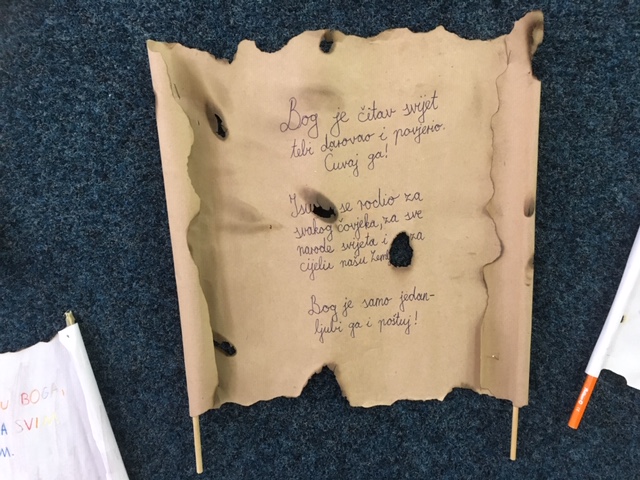 Bog je čitav svijet
tebi darovao i povjerio.
Čuvaj ga!
se rodio za
svakog čovjeka, za sve
narode svijeta i za
cijelu našu
Bog je samo jedan-
ljubi ga i poštuj!
U BOGA,
A
M.